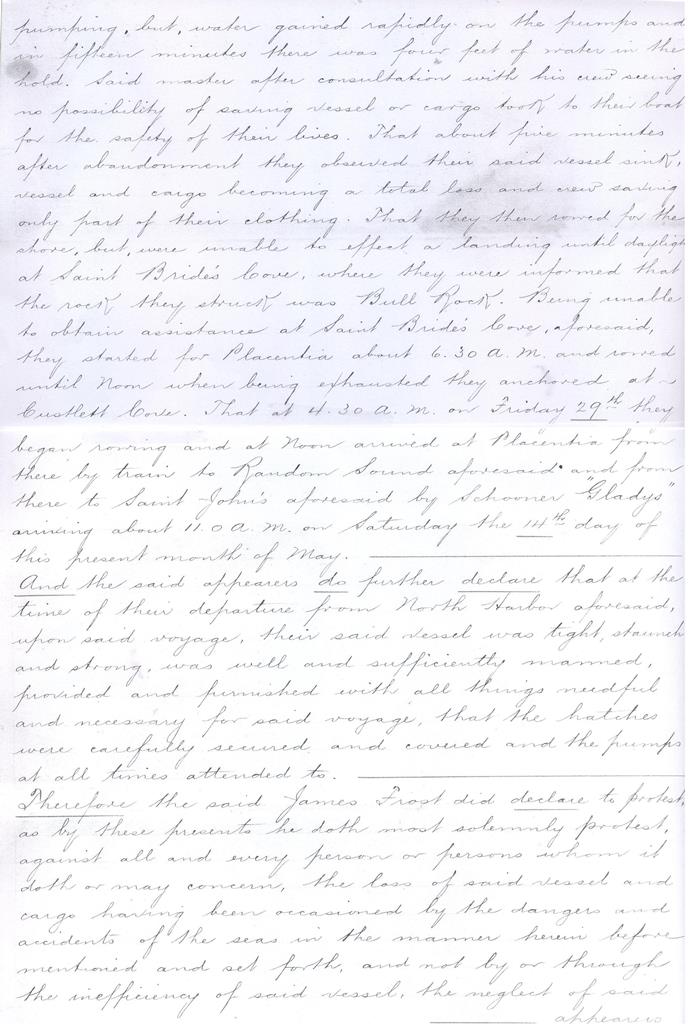 pumping, but, water gained rapidly on the pumps and
in fifteen minutes there was four feet of water in the
hold. Said master after consultation with his crew seeing
no possibility of saving vessel or cargo took to their boat
for the safety of their lives. That about five minutes
after abandonment they observed their said vessel sink,
vessel and cargo becoming a total loss and crew saving
only part of their clothing. That they then rowed for the
shore, but, were unable to effect a landing until dayligh
at Saint Bride's Cove, where they were informed that
the rock they struck was Bull Rock. Being unable
to obtain assistance at Saint Bride's Cove, aforesaid,
they started for Placentia about 6.30 A.M. and rowed
until Noon when being exhausted they anchored at
Custlett Cove. That at 4.30 A.M. on Friday 29th they
began rowing and at Noon arrived at Placentia from
there by train to Random Sound aforesaid and from
there to Saint John's aforesaid by Schooner "Gladys"
arriving about 11.0 A.M. on Saturday the 14th day of
this present month of May.
And the said appearers do further declare that at the
time of their departure from North Harbor aforesaid,
upon said voyage, their said vessel was tight, staunch
and strong, was well and sufficiently manned,
provided and furnished with all things needful
and necessary for said voyage, that the hatches
were carefully secured and covered and the pumps
at all times attended to.
Therefore the said James Frost did declare to protest,
as by these presents he doth most solemnly protest,
against all and every person or persons whom it
doth or may concern, the loss of said vessel and
cargo having been occasioned by the dangers and
accidents of the seas in the manner herein before
mentioned and set forth, and not by or through
the inefficiency of said vessel, the neglect of said
appearers